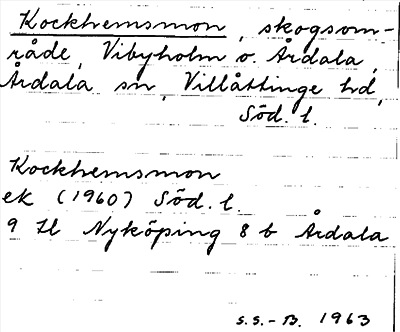 Kockhemsmon, skogsom-
råde, Vibyholm o. Årdala,
Årdala sn, Villåttinge hd,
Söd. l.
Kockhemsmon
ek (1960) Söd. l.
9 H Nyköping 8 b Årdala
S.S.-B. 1963